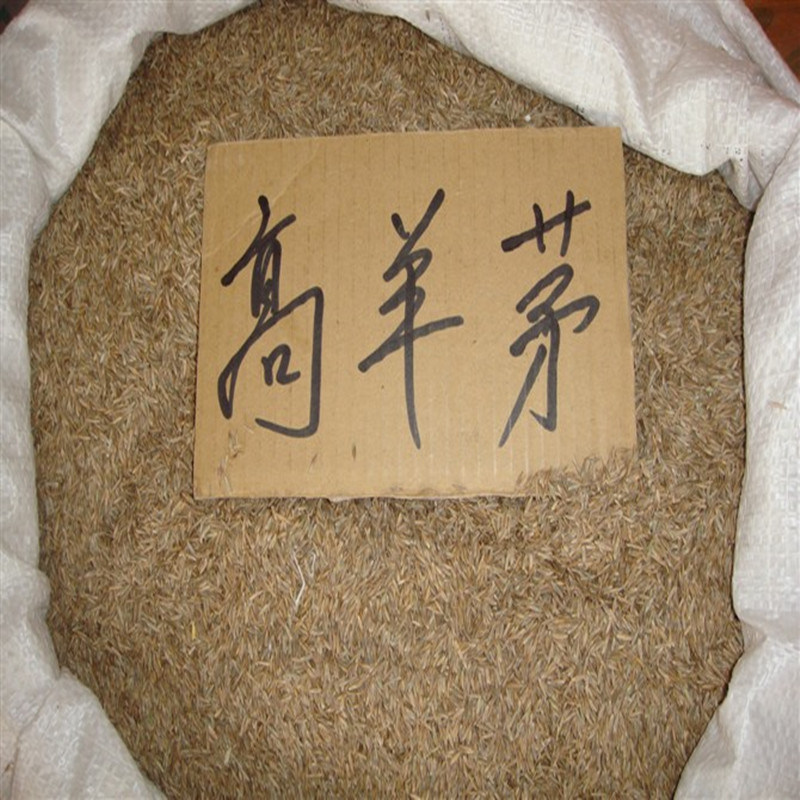 高羊茅